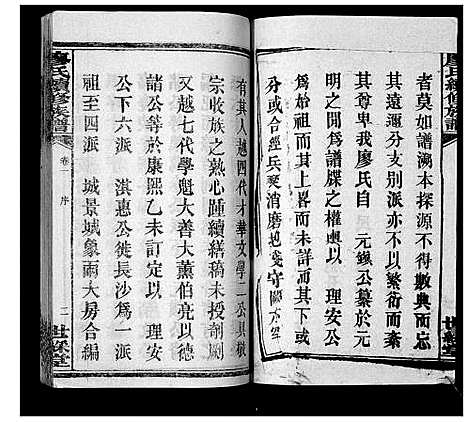 廖氏續修族譜
者莫如譜溯本探源不得數典而忘
其遠遷分支別派亦不以繁衍而紊
於尊卑我廖氏自 元鎮公纂於元
明之間爲譜牒之權輿以 理安公
爲始祖而其上畧而未詳其而下或
分或合經兵燹消磨
世綵堂
有其人越四代才華文學二公具敬
宗收族之熱心踵續繕稿未授剞劂
又越七代學魁大善大薰伯亮以德
諸公等於康熙乙未訂定以 理安
公下六派 淇惠公徙長沙爲一派
祖至四派 城景城象兩大房合編
廖氏續修族譜
卷一 序
二
世綵堂